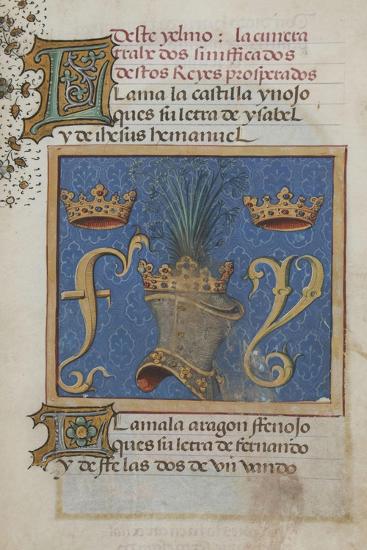 Deste yelmo: la cimera
trahe dos sinifficados
destos Reyes prosperados
Llama la castilla ynojo
ques su letra de ysabel
y de ihesus hemanuel
F Y
Llamala aragon ffenojo
ques su letra de fernando
y de ffe las dos de vn vando